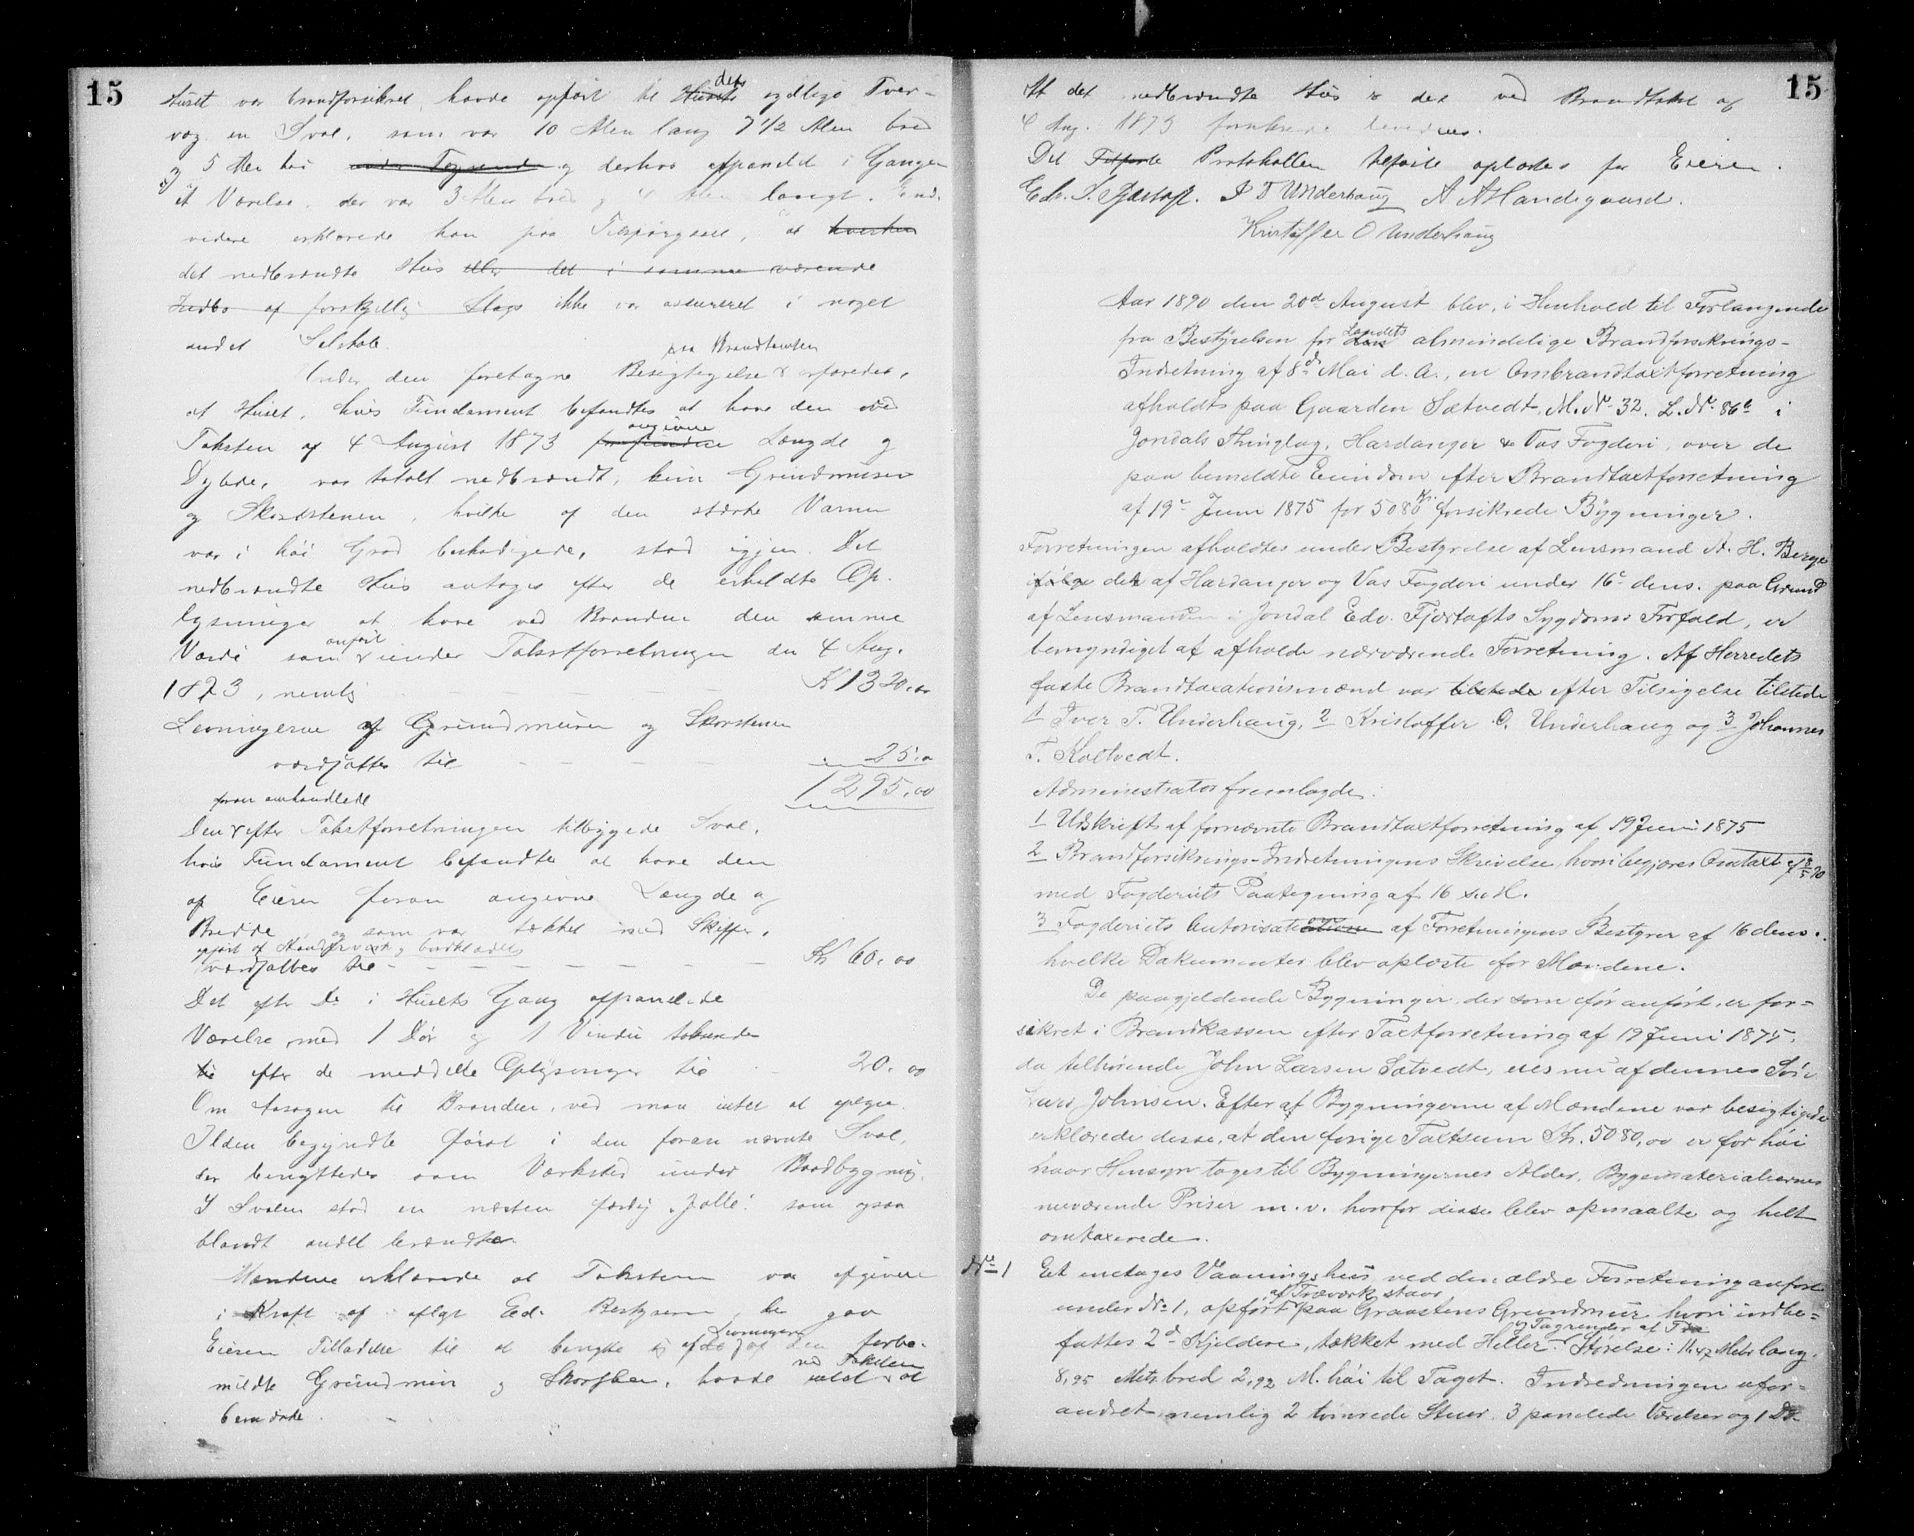 15
Huset var brandforsikret, havde opført til Husets det sydlige Tver-
væg en Sval, som var 10 Alen lang 7 1/2 Alen bred
og 5 Alen høi under Tagrende og derhos afpanelet i Gangen
et Værelse, der var 3 Alen bred og 4 Alen langt. End-
videre erklærede han paa Tilspørgsel, at hverken
det nedbrændte Hus eller det i samme værende
Indbo af forskjellig Slags ikke var assureret i noget
andet Selskab.
Under den foretagne Besigtigelse paa Brandtomten erfaredes,
at Huset, hvis Fundament befandtes at have den ved
Taksten af 4 August 1873 angivne Længde og
Dybde, var totalt nedbrændt, kun Grundmuren
og Skorstenen, hvilke af den stærke Varme
var i høi Grad beskadigede, stod igjen. Det
nedbrændte Hus antages efter de erholdte Op-
lysninger at have ved Branden den samme
Værdi som anført under Takstforretningen den 4 Aug.
1873, nemlig - - - - - K 1320.00
Levningerne af Grundmuren og Skorstenen
værdsattes til - - - - 25.0
1295.00
Den foran omhandlede efter Takstforretningen tilbyggede Sval,
hvis Fundament befandtes at have den
af Eieren foran angivne Længde og
Bredde, og som var tækket med Skiffer,
opført af Standerværk og bordklædt
værdsattes til - - - - - Kr 60.00
Det efter Do i Husets Gang afpanelede
Værelse med 1 Dør og 1 Vindu
efter de meddelte Oplysninger til - 20.00
Om Aarsagen til Branden, ved man intet at oplyse.
Ilden begyndte først i den foran nævnte Sval,
der benyttedes som Værksted under Baadbygning.
I Svalen stod en næsten færdig "Jolle" som ogsaa
blandt andet brændte.
Mændene erklærede at Taksten var afgiven
i Kraft af aflagt Ed. Bestyreren gav
Eieren Tilladelse til at benytte Levningerne af den forbe-
meldte Grundmur og Skorsten, havde ved Taksten intet at
bemærke.
15
At det nedbrændte Hus er det ved Brandtakst af
4 Aug. 1873 forsikrede
Det Tilførte Protokollen tilførte oplæstes for Eieren.
Edv. S. Fjærtoft. I T Underhaug A A Handegaard.
Kristoffer O Underhaug
Aar 1890 den 20de August blev, i Henhold til Forlangende
fra Bestyrelsen for Landets almindelige Brandforsikrings-
Indretning af 8de Mai d. A., en Ombrandtaxtforretning
afholdt paa Gaarden Sætvedt, M. No 32. L. No 86b i
Jondals Thinglag, Hardanger & Vos Fogderi, over de
paa bemeldte Eiendom efter Brandtaxtforretning
af 19de Juni 1875 for 5080 Kr. forsikrede Bygninger.
Forretningen afholdtes under Bestyrelse af Lensmand A. H. Berge
ifølge det af Hardanger og Vos Fogderi under 16de dens. paa Grund
af Lensmanden i Jondal Edv. Fjærtofts Sygdoms Forfald, er
bemyndiget af afholde nærværende Forretning. Af Herredets
faste Brandtaxationsmænd var tilstede efter Tilsigelse tilstede
1 Iver T. Underhaug, 2 Kristoffer O. Underhaug og 3 Johannes
T. Koltvedt.
Administrator fremlagde:
1 Udskrift af fornævnte Brandtaxtforretning af 19 Juni 1875
2 Brandforsikrings-Indretningens Skrivelse, hvori begjæres Omtaxt af 8/5 90
med Fogderiets Paategning af 16 s. M.
3 Fogderiets Autorisation af Forretningens Bestyrer af 16 dens.,
hvilke Dokumenter blev oplæste for Mændene.
De paagjeldende Bygninger, der som før anført, er for-
sikret i Brandkassen efter Taxtforretning af 19 Juni 1875,
da tilhørende John Larsen Sætvedt, eies nu af dennes Søn
Lars Johnsen. Efter at Bygningerne af Mændene var besigtigede
erklærede disse, at den forige Taxtsum Kr. 5080,00 er for høi
naar Hensyn tages til Bygningernes Alder, Bygematerialiernes
nuværende Priser m. v. hvorfor disse blev opmaalte og helt
omtaxerede.
No 1 Et enetages Vaaningshus, ved den ældre Forretning anført
under No 1, opført af Træværk staar paa Graastens Grundmur, hvori indbe-
fattes 2de Kjeldere, tækket med Heller og Tagrender af Træ. Størelse: 11,47 Meter lang.
8,95 Met. bred 2,92 M. høi til Taget. Indredningen ufor-
andret, nemlig 2 tømrede Stuer, 3 panelede Værelser og 1 Do